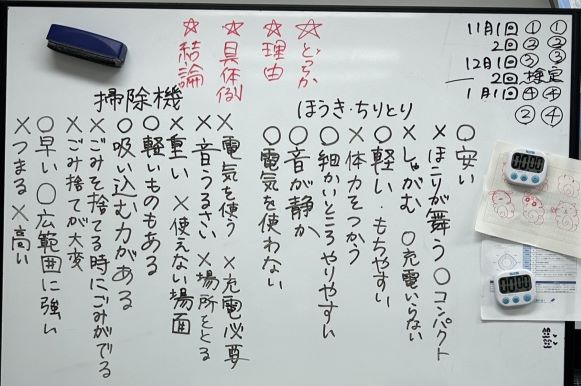 ☆どちらか
☆理由
☆具体例
☆結論
11月1回 ① ①
2回 ② ②
12月1回 ③ ③
2回 検定
1月1回 ④ ④
② ④
ほうき・ちりとり
○安い
×ほこりが舞う ○コンパクト
×しゃがむ ○充電いらない
○軽い・もちやすい
×体力をつかう
○細かいところやりやすい
○音が静か
○電気を使わない
掃除機
×電気を使う ×充電必要
×音うるさい ×場所をとる
×重い ×使えない場面
○軽いものもある
○吸い込む力がある
×ごみを捨てる時にごみがでる
×ごみ捨てが大変
○早い ○広範囲に強い
×つまる ×高い
00:00
00:00